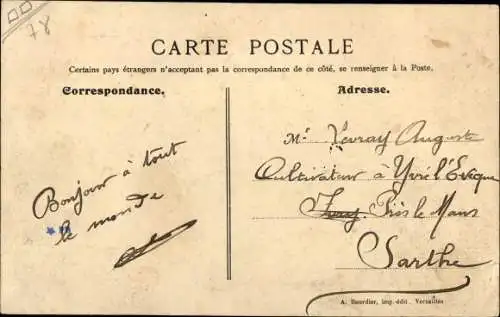 78
CARTE POSTALE
Certains pays étrangers n'acceptant pas la correspondance de ce côté, se renseigner à la Poste.
Correspondance.
Adresse.
Bonjour à tout
le monde
Mr Auguste
Cultivateur à Yvré l'Evêque
Près le Mans
Sarthe
A. Bourdier, imp. édit. Versailles